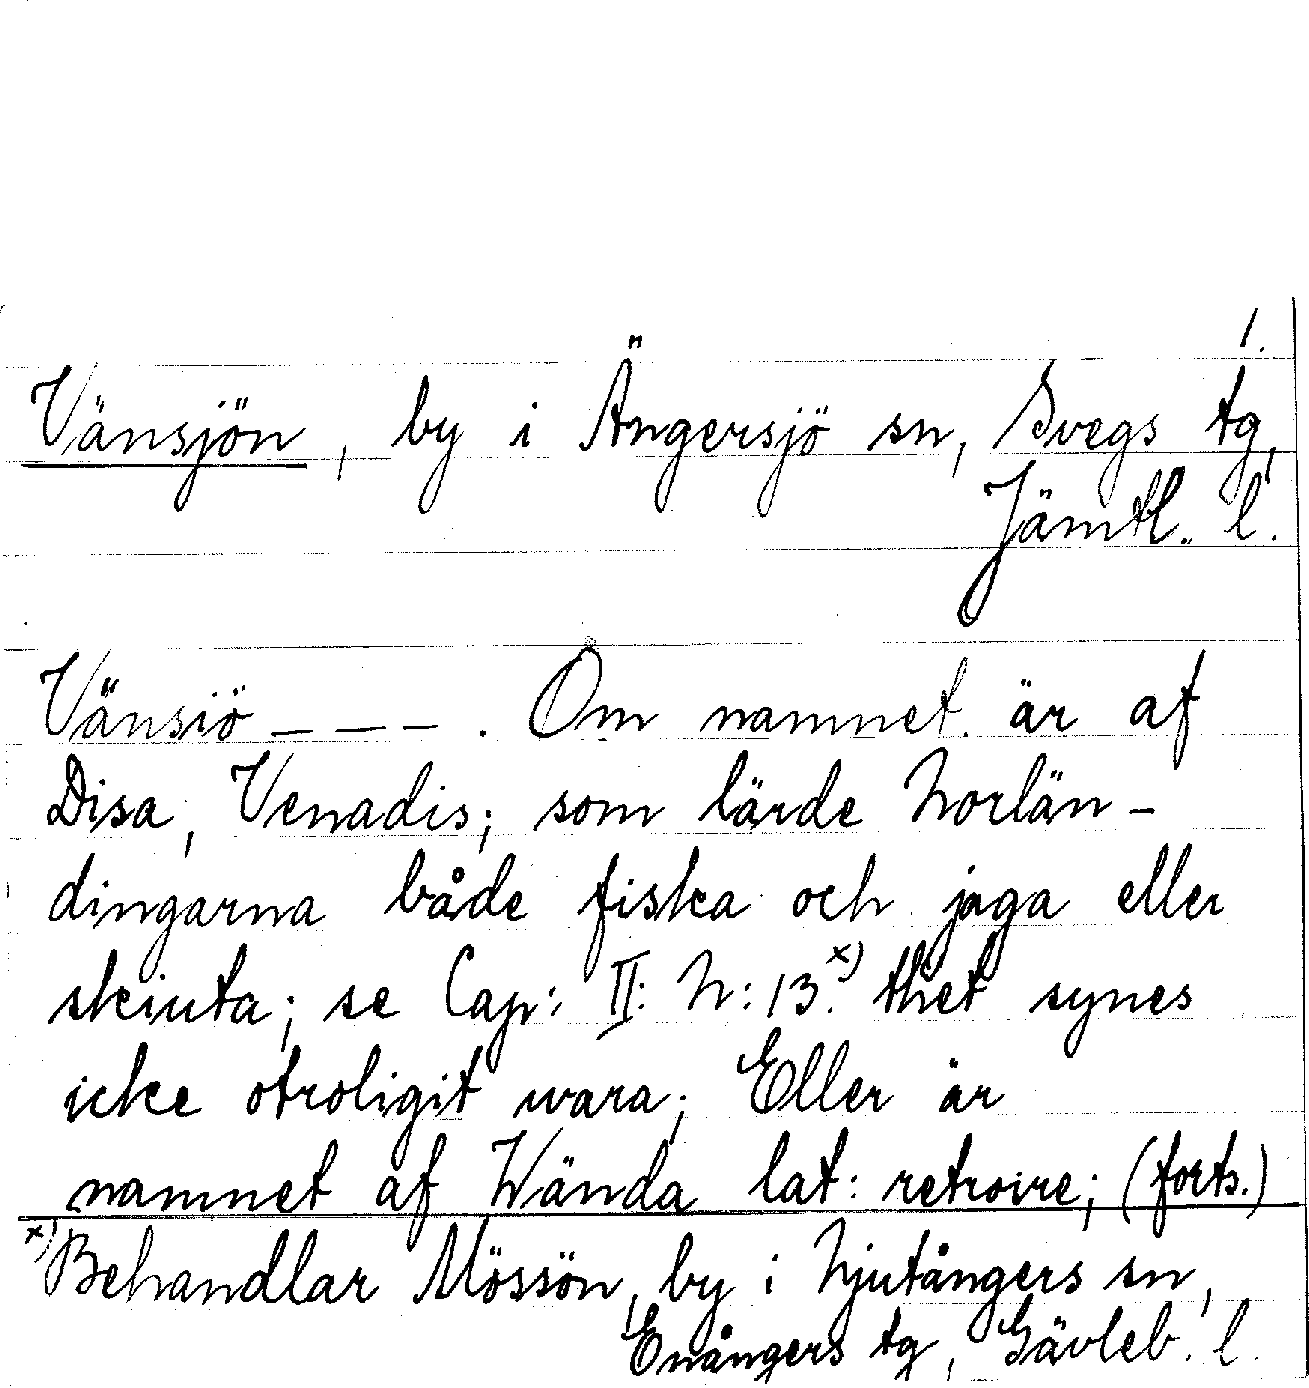 1.
Vänsjön, by i Ängersjö sn, Svegs tg,
Jämtl. l.
Vänsiö _ _ _ . Om namnet är af
Disa, Venadis; som lärde Norlän-
dingarna både fiska och jaga eller
skiuta; se Cap: II: N: 13.x) thet synes
icke otroligit wara; Eller är
namnet af Wända lat: retroire; (forts.)
x) Behandlar Mössön, by i Njutångers sn,
Enångers tg, Gävleb. l.